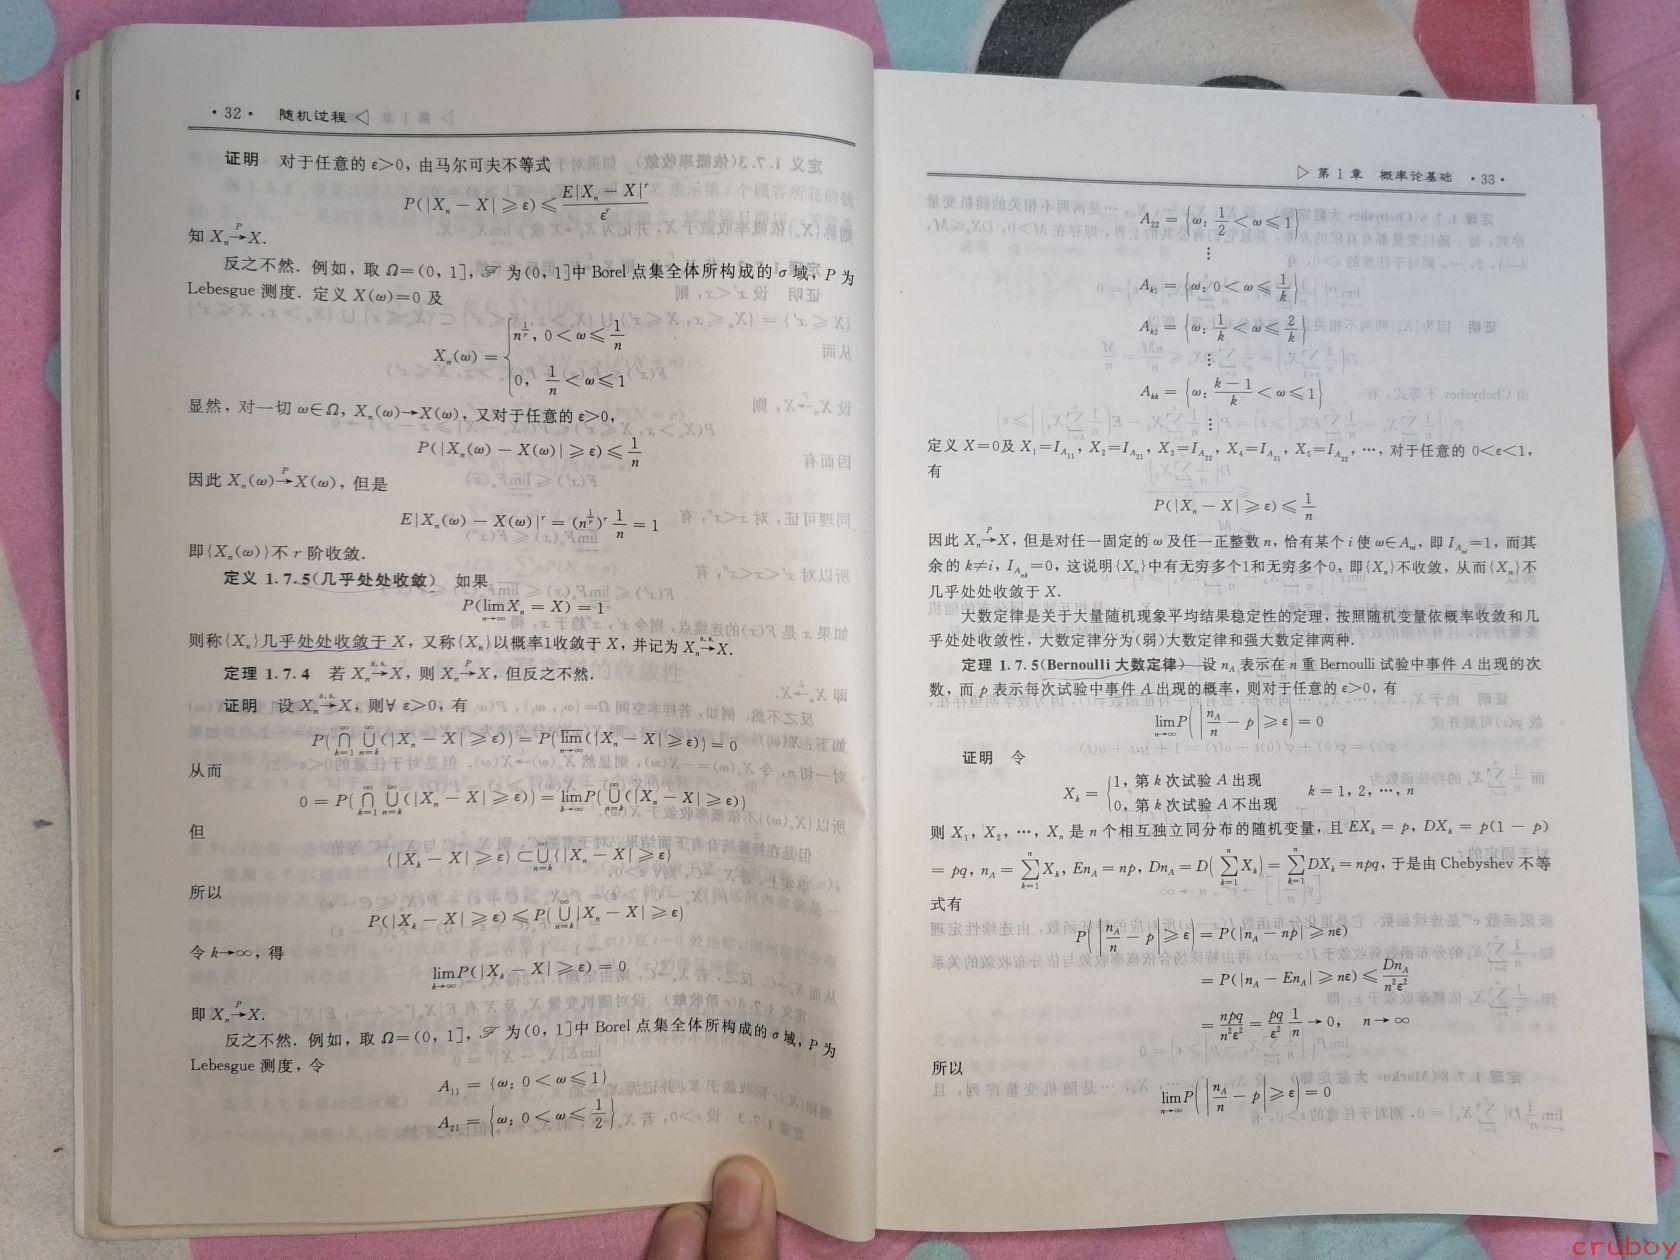 ·32· 随机过程◁
证明 对于任意的 ε>0, 由马尔可夫不等式
P(|Xₙ − X| ⩾ ε) ⩽ E|Xₙ − X|ʳ / εʳ
知 Xₙ →ᴾ X.
反之不然. 例如, 取 Ω=(0, 1], ℱ 为(0, 1]中 Borel 点集全体所构成的 σ 域, P 为
Lebesgue 测度. 定义 X(ω)=0 及
Xₙ(ω) = { n^(1/r), 0<ω⩽1/n
0, 1/n<ω⩽1
显然, 对一切 ω∈Ω, Xₙ(ω)→X(ω), 又对于任意的 ε>0,
P(|Xₙ(ω) − X(ω)| ⩾ ε) ⩽ 1/n
因此 Xₙ(ω) →ᴾ X(ω), 但是
E|Xₙ(ω) − X(ω)|ʳ = (n^(1/r))ʳ 1/n = 1
即{Xₙ(ω)}不 r 阶收敛.
定义 1.7.5(几乎处处收敛) 如果
P(lim_{n→∞} Xₙ = X) = 1
则称{Xₙ}几乎处处收敛于 X, 又称{Xₙ}以概率1收敛于 X, 并记为 Xₙ →^{a.s.} X.
定理 1.7.4 若 Xₙ →^{a.s.} X, 则 Xₙ →ᴾ X, 但反之不然.
证明 设 Xₙ →^{a.s.} X, 则∀ ε>0, 有
P(⋂_{k=1}^{∞} ⋃_{n=k}^{∞} (|Xₙ − X| ⩾ ε)) = P(lim̅_{n→∞} (|Xₙ − X| ⩾ ε)) = 0
从而
0 = P(⋂_{k=1}^{∞} ⋃_{n=k}^{∞} (|Xₙ − X| ⩾ ε)) = lim_{k→∞} P(⋃_{n=k}^{∞} (|Xₙ − X| ⩾ ε))
但
{|X_k − X| ⩾ ε} ⊂ ⋃_{n=k}^{∞} {|Xₙ − X| ⩾ ε}
所以
P(|X_k − X| ⩾ ε) ⩽ P(⋃_{n=k}^{∞} |Xₙ − X| ⩾ ε)
令 k→∞, 得
lim_{k→∞} P(|X_k − X| ⩾ ε) = 0
即 Xₙ →ᴾ X.
反之不然. 例如, 取 Ω=(0, 1], ℱ 为(0, 1]中 Borel 点集全体所构成的 σ 域, P 为
Lebesgue 测度, 令
A₁₁ = {ω: 0<ω⩽1}
A₂₁ = {ω: 0<ω⩽1/2}
▷ 第 1 章 概率论基础 ·33·
A₂₂ = {ω: 1/2<ω⩽1}
⋮
A_{k1} = {ω: 0<ω⩽1/k}
A_{k2} = {ω: 1/k<ω⩽2/k}
⋮
A_{kk} = {ω: (k−1)/k<ω⩽1}
⋮
定义 X=0及 X₁=I_{A₁₁}, X₂=I_{A₂₁}, X₃=I_{A₂₂}, X₄=I_{A₃₁}, X₅=I_{A₃₂}, …, 对于任意的 0<ε<1,
有
P(|Xₙ − X| ⩾ ε) ⩽ 1/n
因此 Xₙ →ᴾ X, 但是对任一固定的 ω 及任一正整数 n, 恰有某个 i 使 ω∈A_{ni}, 即 I_{A_{ni}}=1, 而其
余的 k≠i, I_{A_{nk}}=0, 这说明{Xₙ}中有无穷多个1和无穷多个0, 即{Xₙ}不收敛, 从而{Xₙ}不
几乎处处收敛于 X.
大数定律是关于大量随机现象平均结果稳定性的定理, 按照随机变量依概率收敛和几
乎处处收敛性, 大数定律分为(弱)大数定律和强大数定律两种.
定理 1.7.5(Bernoulli 大数定律) 设 n_A 表示在 n 重 Bernoulli 试验中事件 A 出现的次
数, 而 p 表示每次试验中事件 A 出现的概率, 则对于任意的 ε>0, 有
lim_{n→∞} P(|n_A/n − p| ⩾ ε) = 0
证明 令
X_k = { 1, 第 k 次试验 A 出现 k = 1, 2, …, n
0, 第 k 次试验 A 不出现
则 X₁, X₂, …, Xₙ 是 n 个相互独立同分布的随机变量, 且 EX_k = p, DX_k = p(1 − p)
= pq, n_A = ∑_{k=1}^{n} X_k, En_A = np, Dn_A = D(∑_{k=1}^{n} X_k) = ∑_{k=1}^{n} DX_k = npq, 于是由 Chebyshev 不等
式有
P(|n_A/n − p| ⩾ ε) = P(|n_A − np| ⩾ nε)
= P(|n_A − En_A| ⩾ nε) ⩽ Dn_A/n²ε²
= npq/n²ε² = pq/ε² 1/n → 0, n → ∞
所以
lim_{n→∞} P(|n_A/n − p| ⩾ ε) = 0
cruboy